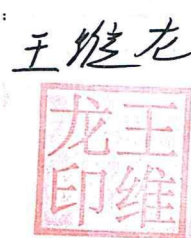 :
王维龙
王维龙印